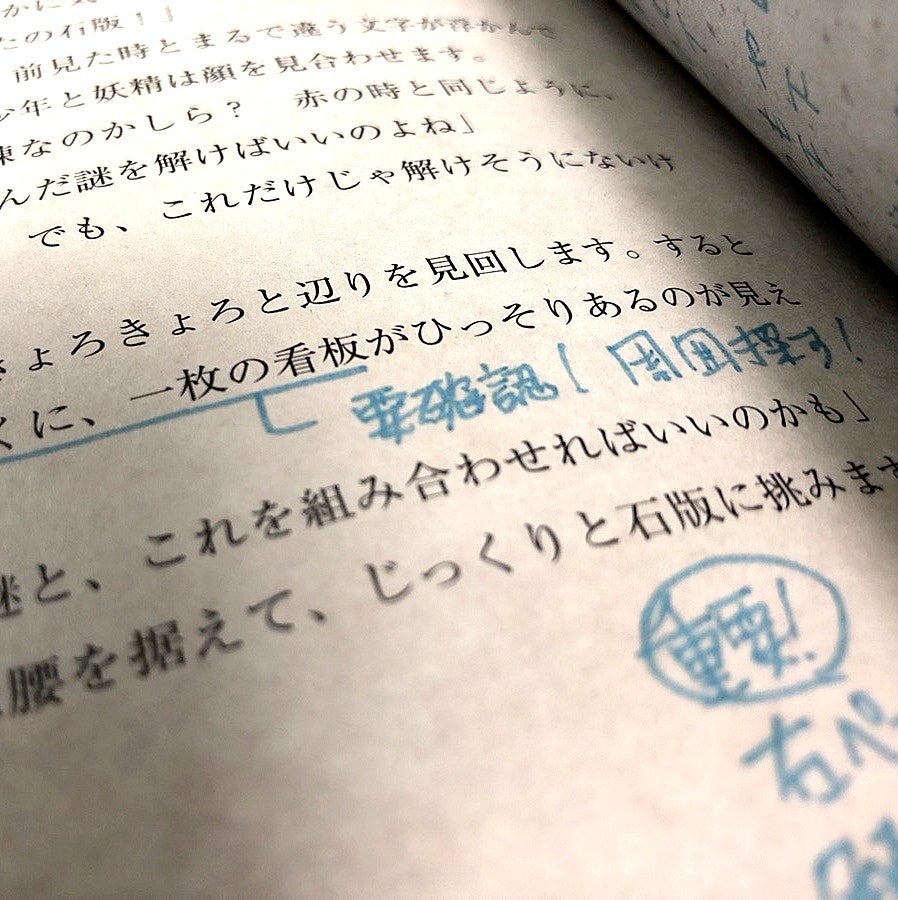 かに気
たの石版！」
前見た時とまるで違う文字が浮かんで
少年と妖精は顔を見合わせます。
なのかしら？　赤の時と同じように、
んだ謎を解けばいいのよね」
でも、これだけじゃ解けそうにないけ
きょろきょろと辺りを見回します。すると
くに、一枚の看板がひっそりあるのが見え
要確認！ 周囲探す！
謎と、これを組み合わせればいいのかも」
腰を据えて、じっくりと石版に挑みます
重要！
右ペー